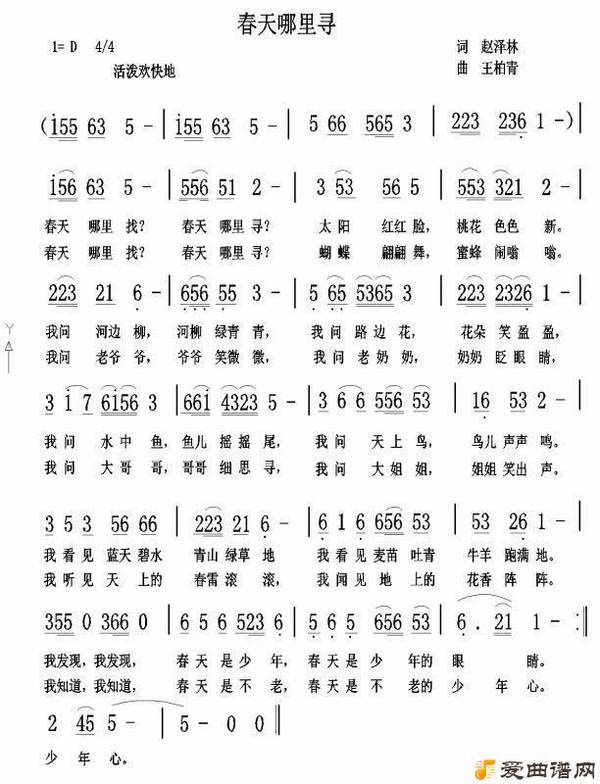 春天哪里寻
1= D 4/4
词 赵泽林
活泼欢快地
曲 王柏青
(i55 63 5 - | i55 63 5 - | 5 66 565 3 | 223 236 1 - )|
i56 63 5 - | 556 51 2 - | 3 53 56 5 | 553 321 2 - |
春天 哪里 找? 春天 哪里 寻? 太 阳 红红 脸, 桃花 色色 新。
春天 哪里 找? 春天 哪里 寻? 蝴 蝶 翩翩 舞, 蜜蜂 闹嗡 嗡。
223 21 6 - | 656 55 3 - | 5 65 5365 3 | 223 2326 1 - |
我问 河边 柳, 河柳 绿青 青, 我 问 路边 花, 花朵 笑 盈盈,
我问 老爷 爷, 爷爷 笑微 微, 我 问 老奶 奶, 奶奶 眨眼 睛,
3 i 7 6i56 3 | 66i 4323 5 - | 3 6 6 556 53 | 16 53 2 - |
我 问 水中 鱼, 鱼儿 摇摇 尾, 我 问 天上 鸟, 鸟儿 声声 鸣。
我 问 大哥 哥, 哥哥 细思 寻, 我 问 大姐 姐, 姐姐 笑出 声。
3 5 3 56 66 | 223 21 6 - | 6 1 6 656 53 | 53 26 1 - |
我 看 见 蓝天 碧水 青山 绿草 地 我 看 见 麦苗 吐青 牛羊 跑满 地。
我 听 见 天上 的 春雷 滚 滚, 我 闻 见 地上 的 花香 阵 阵。
355 0 366 0 | 6 5 6 523 6 | 5 6 5 656 53 | 6 . 21 1 - :||
我发现, 我发现, 春 天 是 少 年, 春天 是 少 年的 眼 睛。
我知道, 我知道, 春 天 是 不 老, 春天 是 不 老的 少 年 心。
2 45 5 - | 5 - 0 0 ||
少 年 心。
爱曲谱网